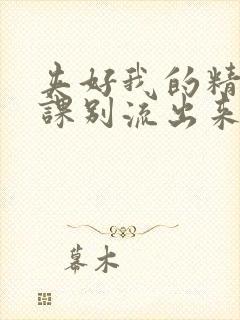 好我的精
課别流出来
幕木